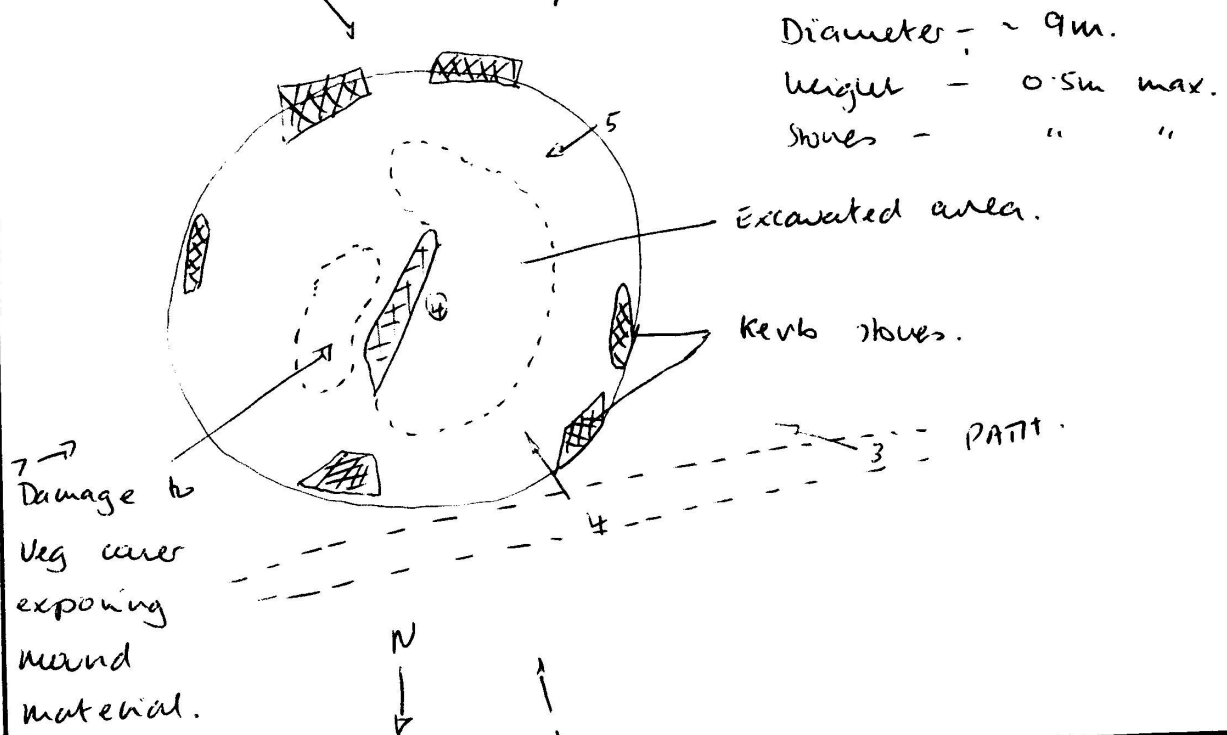 Diameter - ~ 9m.
Height - 0.5m max.
Stones - " "
5
Excavated area.
4
Kerb stones.
3
PATH.
7
Damage to
4
Veg cover
exposing
mound
material.
N